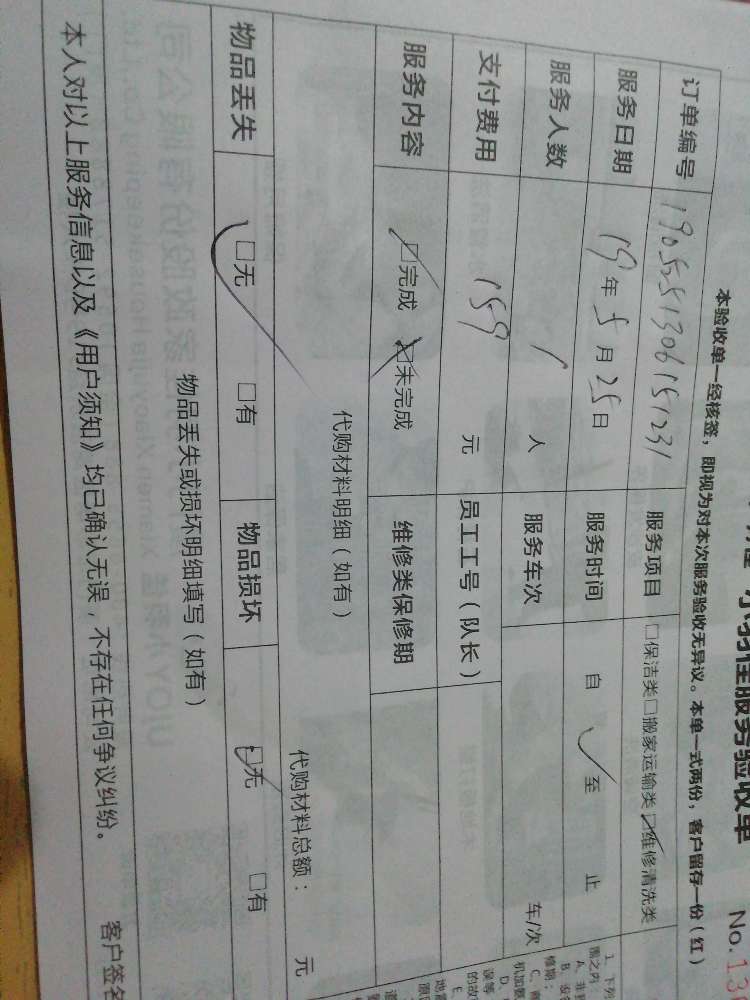 服务验收单 No.13
本验收单一经核签，即视为对本次服务验收无异议。本单一式两份，客户留存一份（红）
订单编号 1905251306151231 服务项目 □保洁类□搬家运输类☑维修清洗类
服务日期 19年5月25日 服务时间 自 至 止
服务人数 1 人 服务车次 车/次
支付费用 159 元 员工工号（队长）
服务内容 □完成 □未完成 维修类保修期
代购材料明细（如有）
代购材料总额： 元
物品丢失 □无 □有 物品损坏 □无 □有
物品丢失或损坏明细填写（如有）
本人对以上服务信息以及《用户须知》均已确认无误，不存在任何争议纠纷。
客户签名